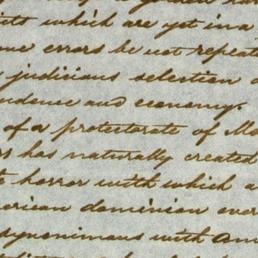 which are yet in a
errors be not repeat
judicious selection
and economy.
of a protectorate of Mo
has naturally created
horror with which a
erican dominion over
synonimous with Am